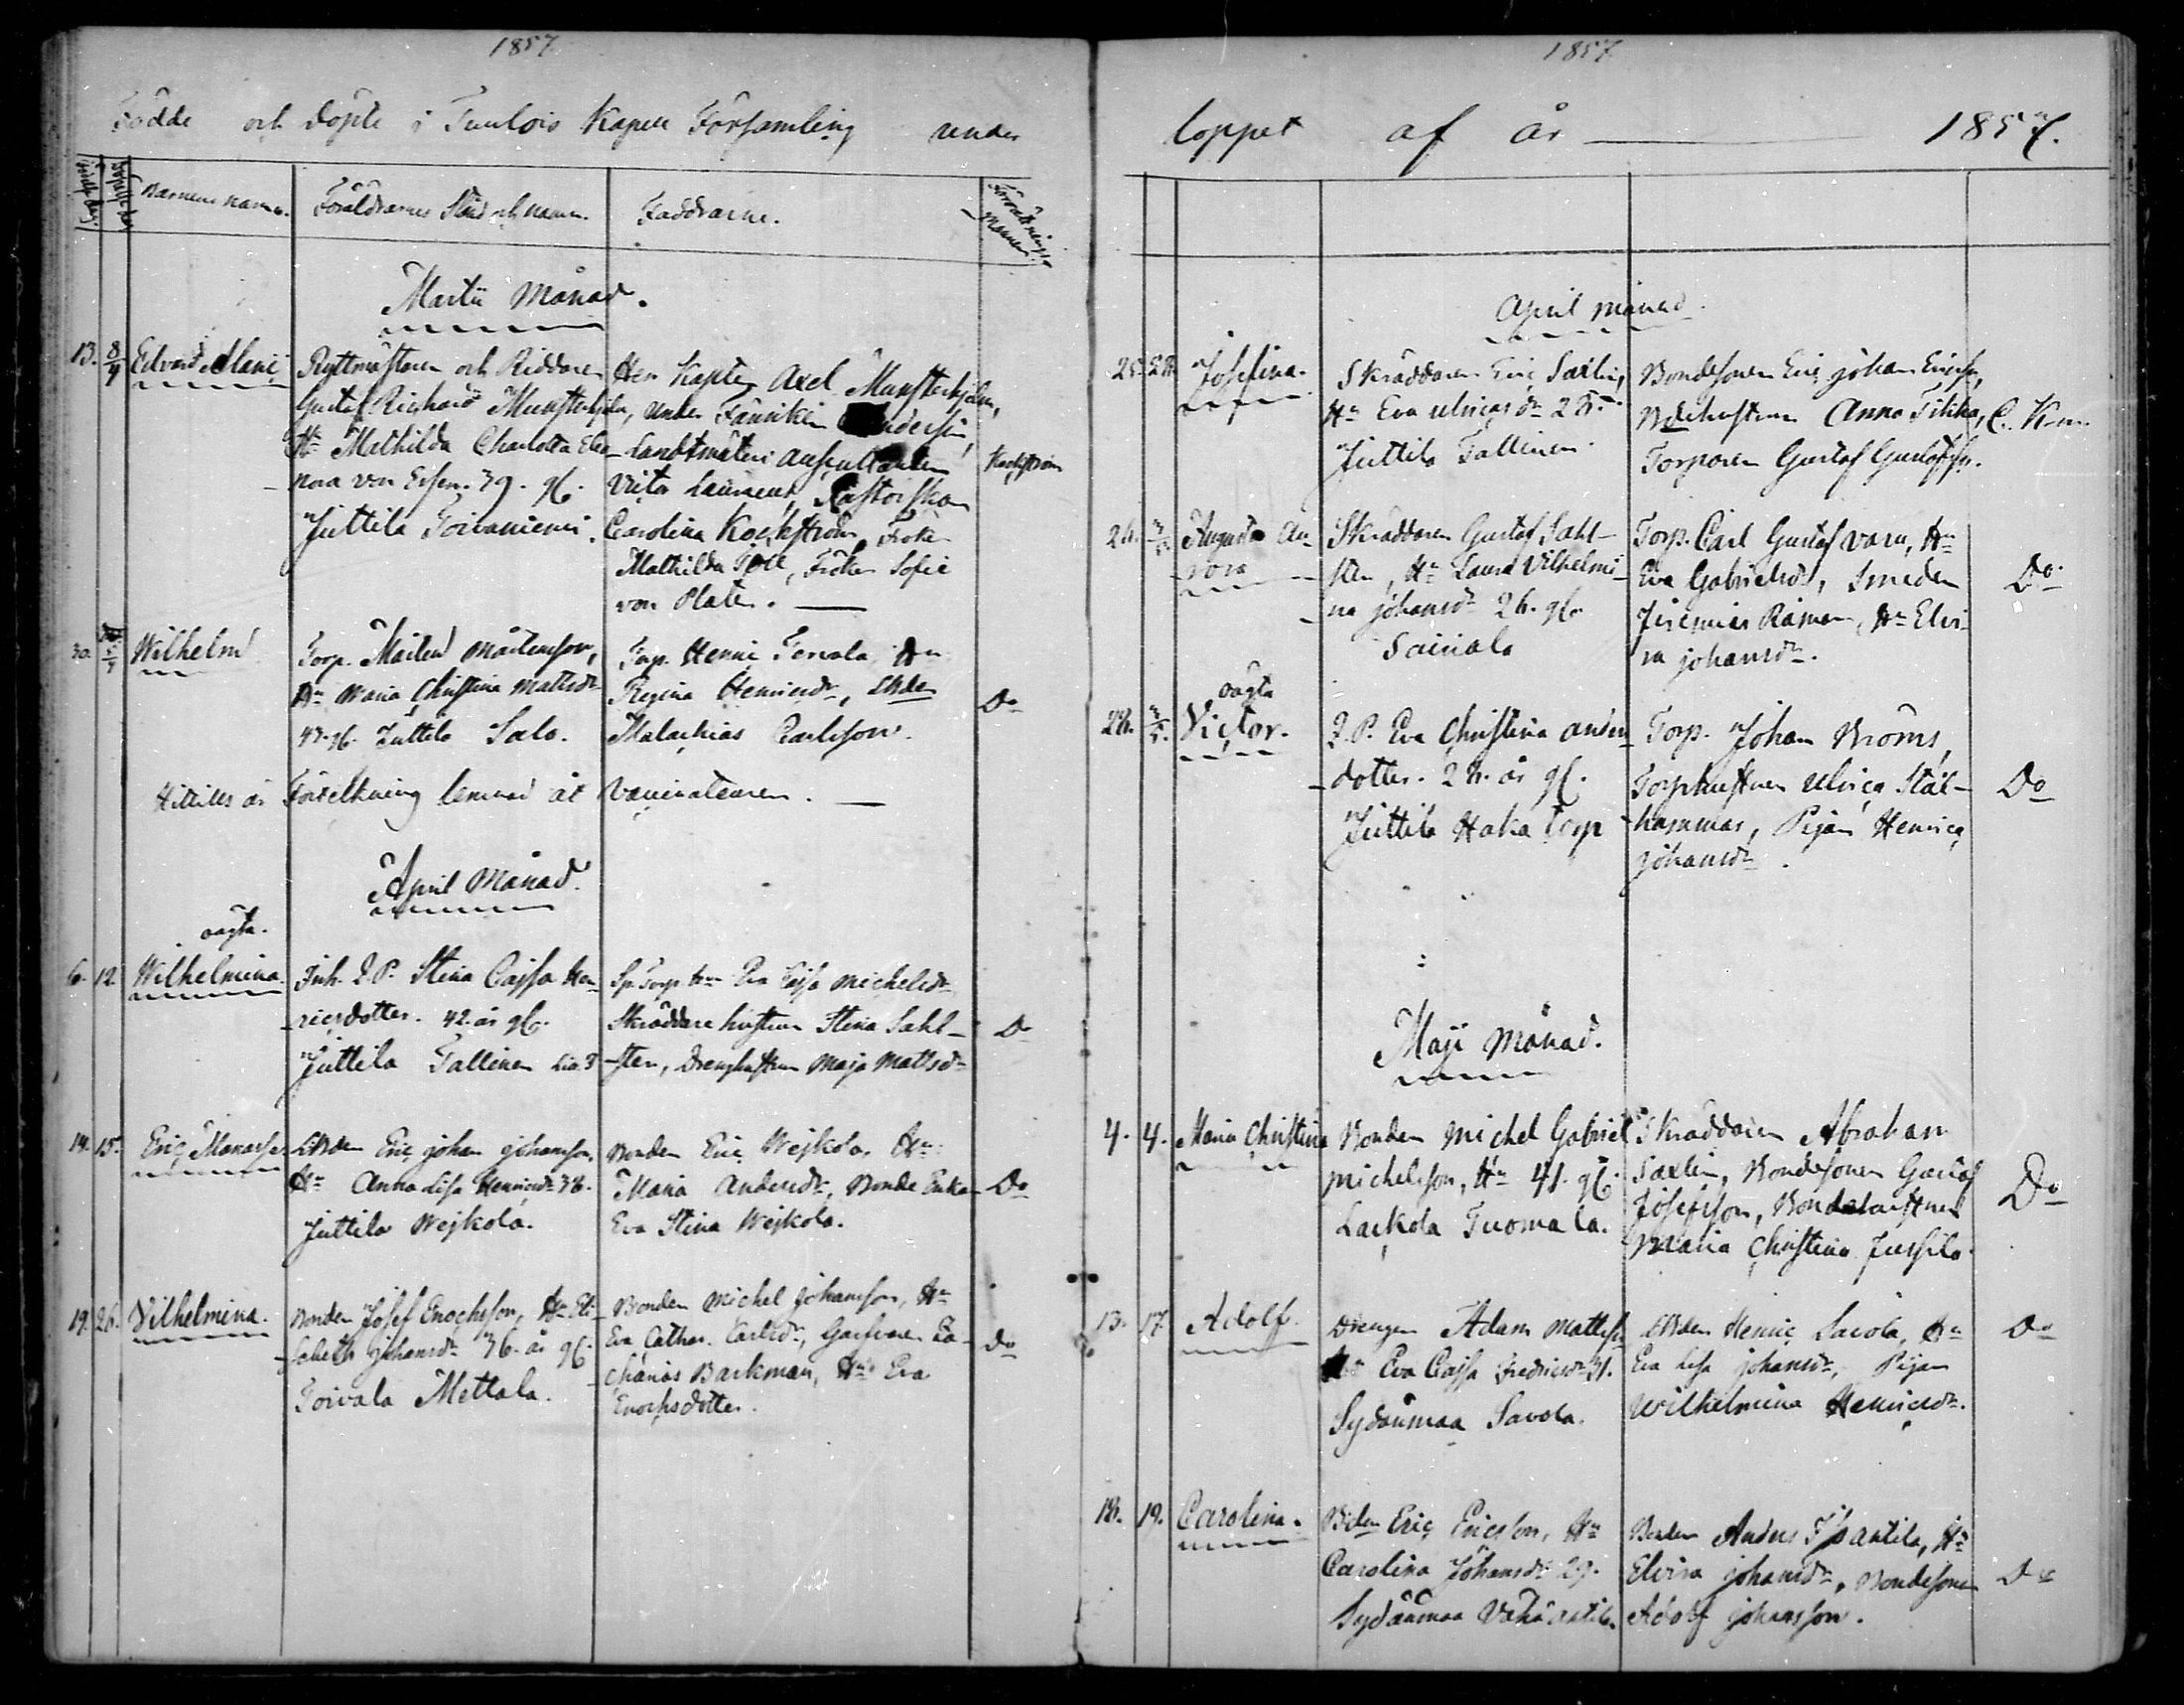 1857
Födde och döpte i Tuulois Kapell Församling under
Barnens namn.
Föräldrarnes Stånd och namn.
Faddrarne.
Förrättnings
Mannen
Martii Månad.
13. 8/4 Edvard
Ryttmästaren och Riddaren
Gustaf Richard Munsterhjelm,
Hu Mathilda Charlotta Eleo-
nora von Essen. 39. gf.
Juttila Toivaniemi.
Herr Kapten Axel Munsterhjelm,
Under Fänriken
Landtmäteri Auscultanten
Victor Laurent, Pastorskan
Carolina Kockström, Fröken
Mathilda Toll, Fröken Sofie
von Platen.
Kockström
30. Wilhelm
Torp. Mårten Mårtensson,
Hu Maria Christina Mattsdr
43. gf. Juttila Salo.
Torp. Henric Tervala, Hu
Regina Henricsdr,
Malachias Carlsson.
Do
Hittills är Förteckning lemnad åt Vaccinateuren.
April Månad.
oägta.
6. 12. Wilhelmina.
Inh. Q. P. Stina Cajsa Hen-
ricsdotter. 42. år gf.
Juttila Tallinen
Torp. Hu Eva Cajsa Michelsdr
Skräddare hustrun Stina Sahl-
sten, Drenghustrun Maja Mattsdr
Do
14. 15. Eric Manasse
Eric Johan Johansson,
Hu Anna Lisa Henricsdr 38.
Juttila Wejkola.
Bonden Eric Wejkola, Hu
Maria Andersdr, Bonde Enkan
Eva Stina Wejkola.
Do
19. 26. Vilhelmina.
Bonden Josef Enochsson, Hu Eli-
sabeth Johansdr 36. år gf.
Toivala Mettala.
Bonden Michel Johansson, Hu
Eva Cathar. Carlsdr, Garfvaren Za-
charias Barkman, Hu Eva
Enochsdotter.
Do
1857
loppet af år 1857.
April månad.
25. Josefina.
Skräddaren Eric Saxlin,
Hu Eva Ulricasdr 28.
Juttila Tallinen
Bondesonen Eric Johan Ericss.,
Anna Tilika,
Torparen Gustaf Gustafss.
26. 3/5. Augusta Au-
rora
Skräddaren Gustaf Sahl-
sten, Hu Laura Vilhelmi-
na Johansdr 26. gf.
Sairiala
Torp. Carl Gustaf Vara, Hu
Eva Gabrielsdr, Smeden
Jeremias Råman, Hu Elvi-
ra Johansdr.
Do
oägta
28. 3/5. Victor.
Q. P. Eva Christina Anders-
dotter. 28. år gf.
Juttila Haka torp
Torp. Johan Broms,
Torphustrun Ulrica Stål-
hammar, Pigan Henrica
Johansdr.
Do
Maji Månad.
4. 4. Maria Christina
Bonden Michel Gabriel
Michelsson, Hu 41. gf.
Laikola Tuomala.
Skräddaren Abraham
Saxlin, Bondesonen Gustaf
Josefsson, Bondehustrun
Maria Christina Jussila.
Do
13. 17. Adolf.
Drengen Adam Mattss.
Hu Eva Cajsa Fredricsdr 31.
Sydänmaa Savola.
Henric Savola, Hu
Eva Lisa Johansdr, Pigan
Wilhelmina Henricsdr.
Do
18. 19. Carolina.
Bden Eric Ericsson, Hu
Carolina Johansdr 29.
Sydänmaa Vähäantila.
Bonden Anders Isoantila, Hu
Elvira Johansdr, Bondesonen
Adolf Johansson.
Do